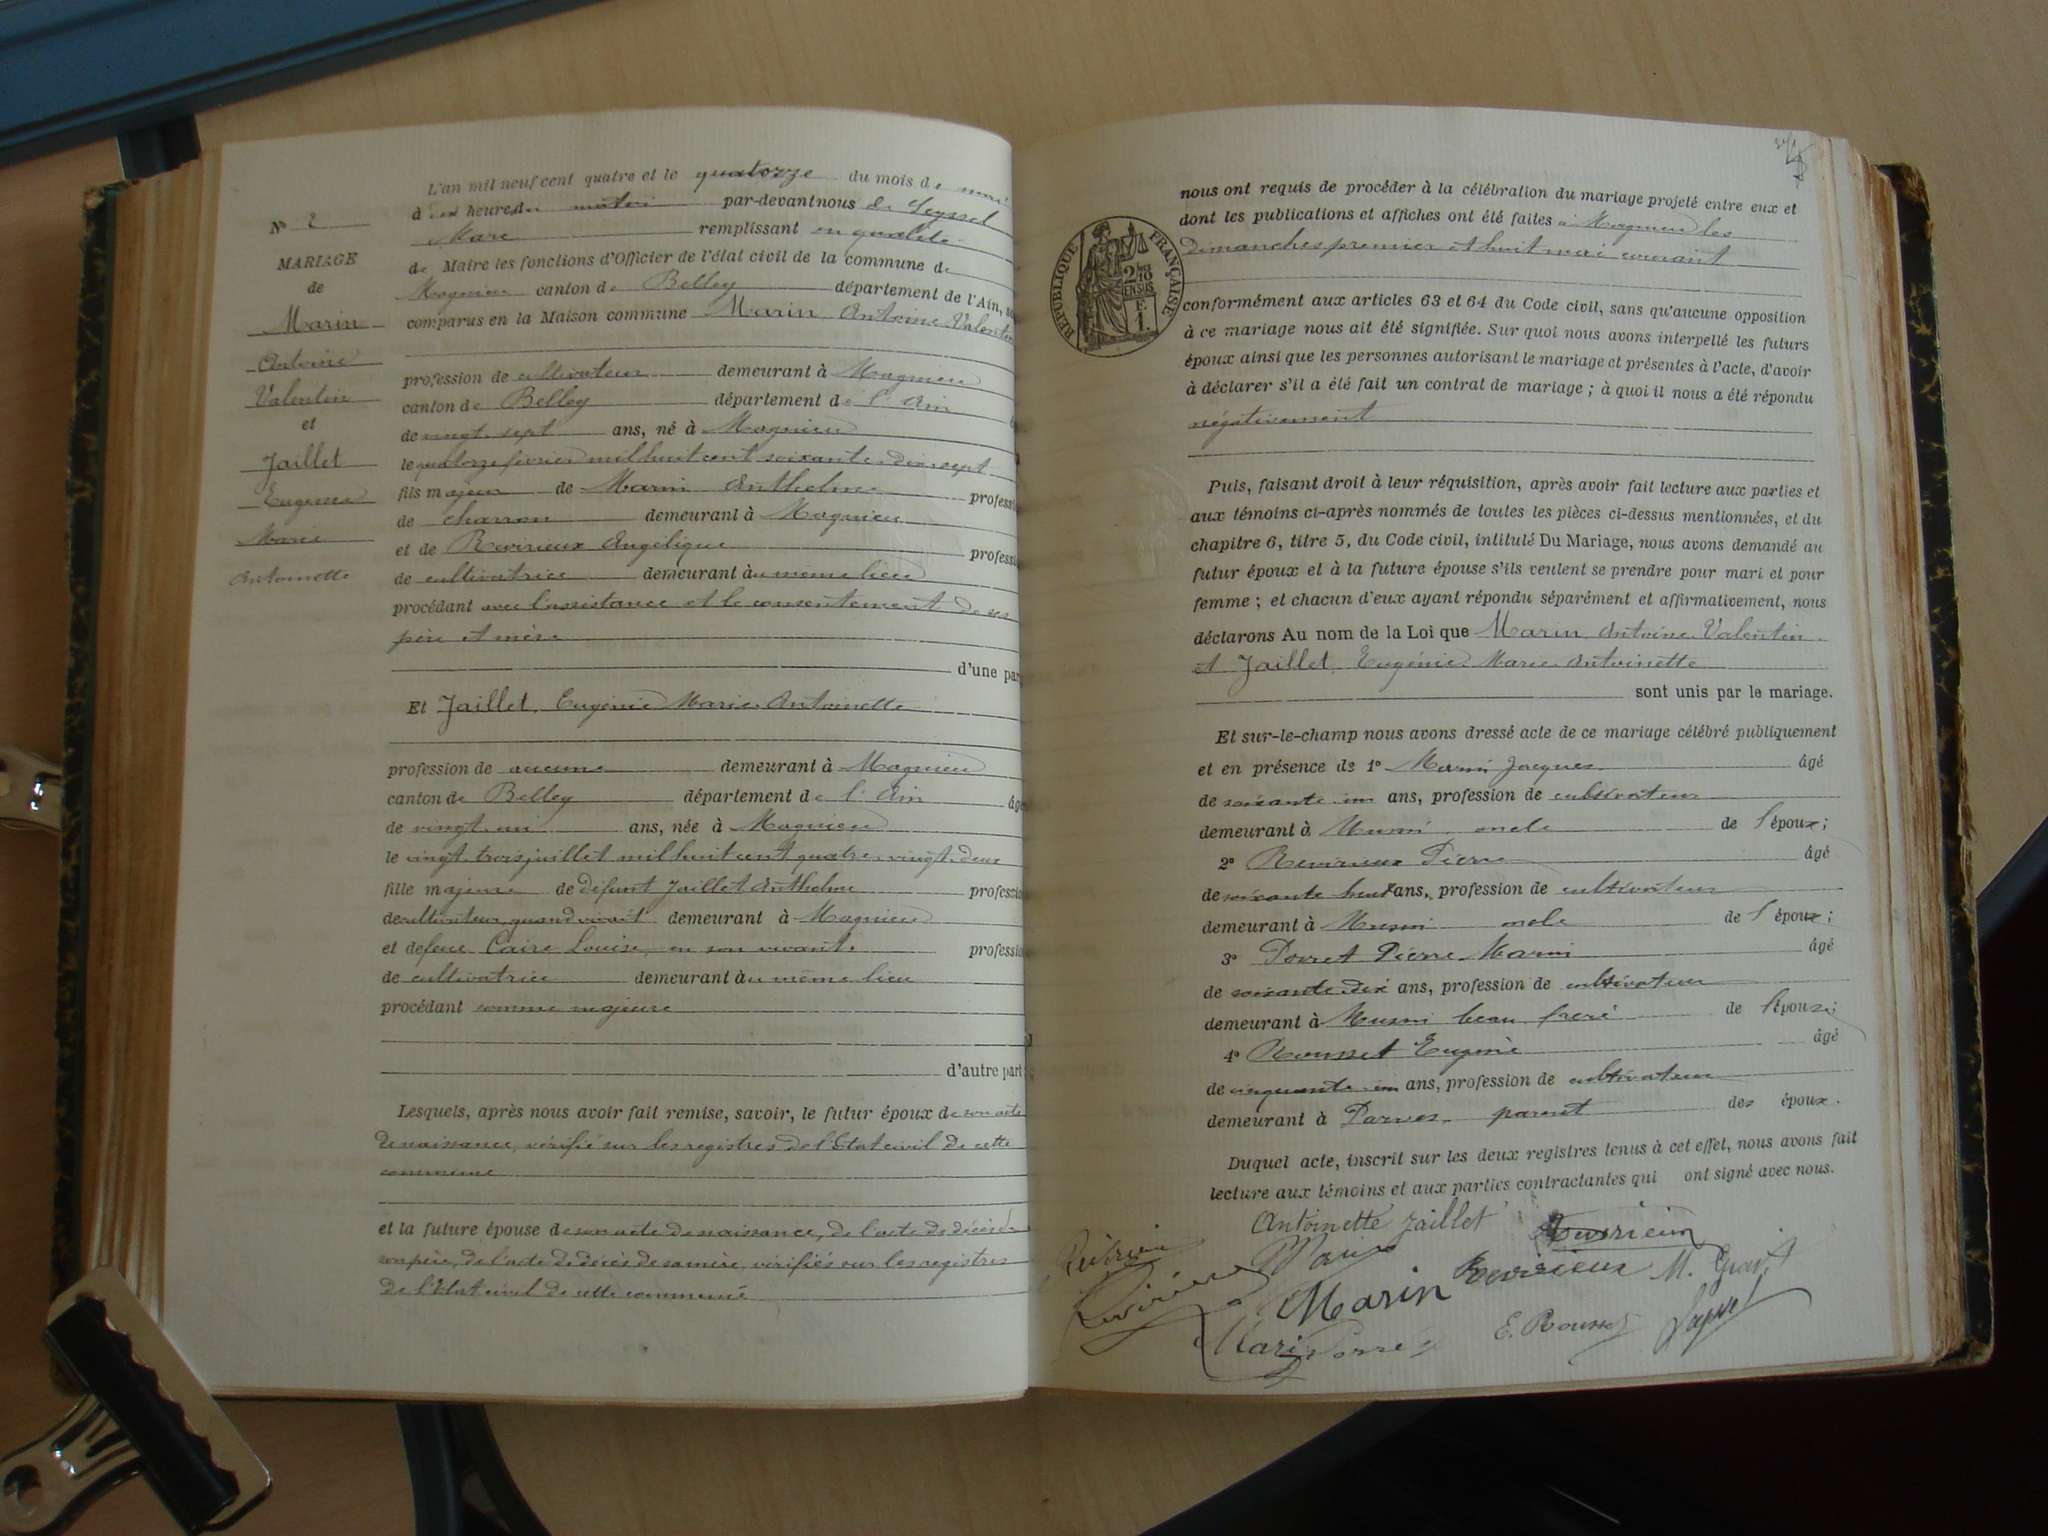 L'an mil neuf cent quatre et le quatorze du mois de mai
à dix heures du matin par-devant nous de Seyssel
Marc remplissant en qualité
de Maire les fonctions d'Officier de l'état civil de la commune de
Magnieu canton de Belley département de l'Ain,
comparus en la Maison commune Marin Antoine Valentin
profession de cultivateur demeurant à Magnieu
canton de Belley département de l'Ain
de vingt sept ans, né à Magnieu
le quatorze février mil huit cent soixante dix sept
fils majeur de Marin Anthelme professi
de charron demeurant à Magnieu
et de Revirieux Angélique professi
de cultivatrice demeurant au même lieu
procédant avec l'assistance et le consentement de ses
père et mère
d'une par
Et Jaillet Eugénie Marie Antoinette
profession de aucune demeurant à Magnieu
canton de Belley département de l'Ain âgé
de vingt un ans, née à Magnieu
le vingt trois juillet mil huit cent quatre vingt deux
fille majeure de défunt Jaillet Anthelme professio
de cultivateur quand vivait demeurant à Magnieu
et de feue Caire Louise, en son vivant professio
de cultivatrice demeurant au même lieu
procédant comme majeure
d'autre part
Lesquels, après nous avoir fait remise, savoir, le futur époux de son acte
de naissance, vérifié sur les registres de l'Etat civil de cette
commune
et la future épouse de son acte de naissance, de l'acte de décès de
son père, de l'acte de décès de sa mère, vérifiés sur les registres
de l'Etat civil de cette commune
N° 2
MARIAGE
de
Marin
Antoine
Valentin
et
Jaillet
Eugénie
Marie
Antoinette
nous ont requis de procéder à la célébration du mariage projeté entre eux et
dont les publications et affiches ont été faites à Magnieu les
dimanches premier et huit mai courant
RÉPUBLIQUE FRANÇAISE
2/10 EN SUS
E.
1.
conformément aux articles 63 et 64 du Code civil, sans qu'aucune opposition
à ce mariage nous ait été signifiée. Sur quoi nous avons interpellé les futurs
époux ainsi que les personnes autorisant le mariage et présentes à l'acte, d'avoir
à déclarer s'il a été fait un contrat de mariage ; à quoi il nous a été répondu
négativement
Puis, faisant droit à leur réquisition, après avoir fait lecture aux parties et
aux témoins ci-après nommés de toutes les pièces ci-dessus mentionnées, et du
chapitre 6, titre 5, du Code civil, intitulé Du Mariage, nous avons demandé au
futur époux et à la future épouse s'ils veulent se prendre pour mari et pour
femme ; et chacun d'eux ayant répondu séparément et affirmativement, nous
déclarons Au nom de la Loi que Marin Antoine Valentin
et Jaillet Eugénie Marie Antoinette
sont unis par le mariage.
Et sur-le-champ nous avons dressé acte de ce mariage célébré publiquement
et en présence de 1° Marin Jacques âgé
de soixante un ans, profession de cultivateur
demeurant à Musin oncle de l'époux ;
2° Revirieux Pierre âgé
de soixante huit ans, profession de cultivateur
demeurant à Musin oncle de l'époux ;
3° Porret Pierre Marin âgé
de soixante dix ans, profession de cultivateur
demeurant à Musin beau frère de l'épouse ;
4° Rousset Eugène âgé
de cinquante un ans, profession de cultivateur
demeurant à Parves, parent des époux.
Duquel acte, inscrit sur les deux registres tenus à cet effet, nous avons fait
lecture aux témoins et aux parties contractantes qui ont signé avec nous.
Antoinette Jaillet
Marin
Revirieux
E. Rousset